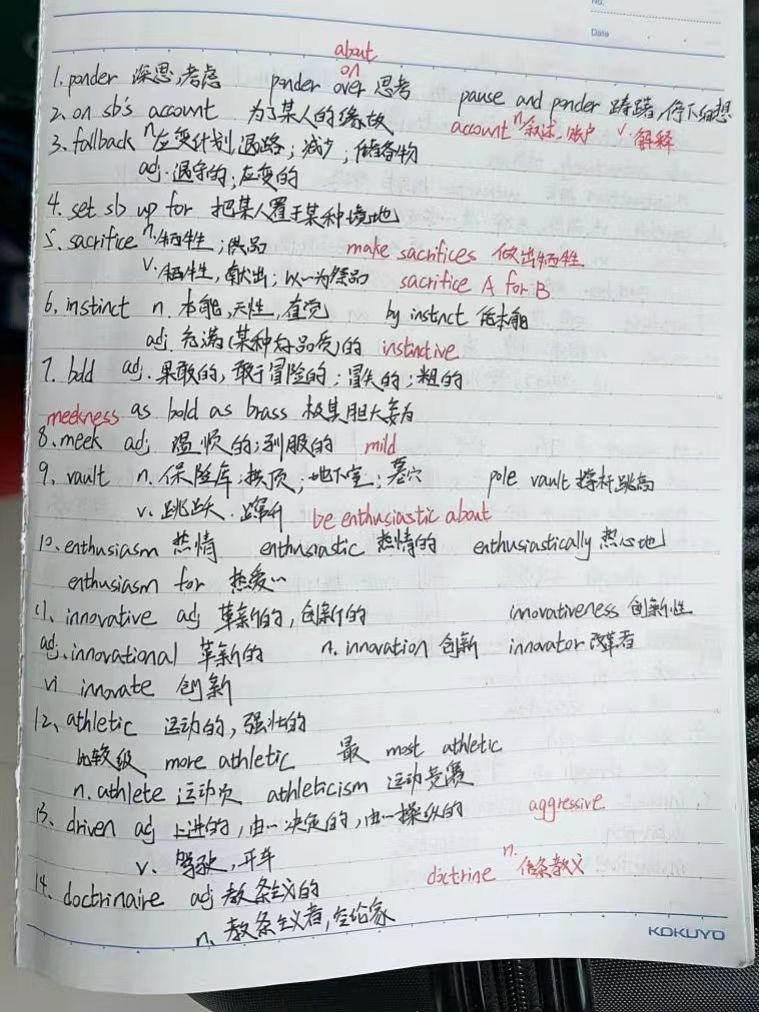 No.
Date
about
on
1. ponder 深思,考虑 ponder over 思考 pause and ponder 踌躇,停下细想
2. on sb's account 为了某人的缘故 account n.叙述.账户 v.解释
3. fallback n 应变计划,退路;减少;储备物
adj.退守的;应变的
4. set sb up for 把某人置于某种境地
5. sacrifice n.牺牲;供品 make sacrifices 做出牺牲
v.牺牲,献出;以…为祭品 sacrifice A for B
6. instinct n.本能,天性,直觉 by instinct 凭本能
adj.充满(某种好品质)的 instinctive
7. bold adj.果敢的,敢于冒险的;冒失的;粗的
meekness as bold as brass 极其胆大妄为
8. meek adj 温顺的;驯服的 mild
9. vault n.保险库;拱顶;地下室;墓穴 pole vault 撑杆跳高
v.跳跃.蹿升 be enthusiastic about
10. enthusiasm 热情 enthusiastic 热情的 enthusiastically 热心地
enthusiasm for 热爱…
11. innovative adj 革新的,创新的 innovativeness 创新性
adj.innovational 革新的 n.innovation 创新 innovator 改革者
vi innovate 创新
12. athletic 运动的,强壮的
比较级 more athletic 最 most athletic
n.athlete 运动员 athleticism 运动竞赛
13. driven adj 上进的,由…决定的,由…操纵的 aggressive
v.驾驶,开车
14. doctrinaire adj 教条主义的 doctrine n.信条教义
n.教条主义者,空论家
KOKUYO